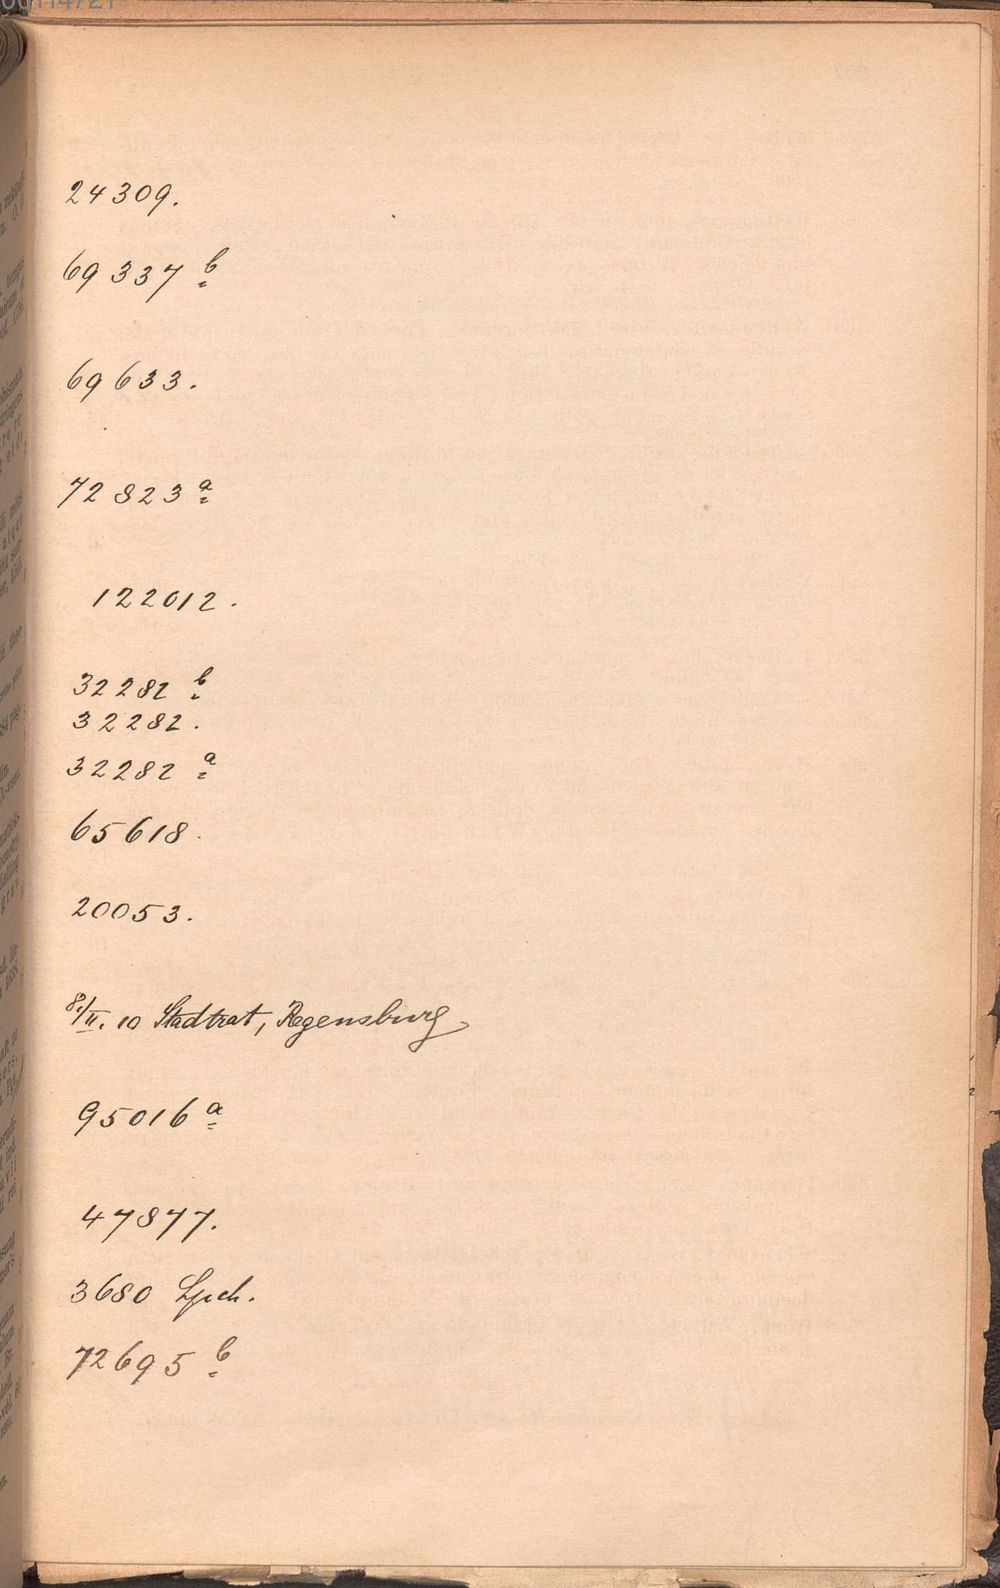 24309.
69337 b
69633.
72823 a
122012.
32282 b
32282.
32282 a
65618.
20053.
8./II. 10 Stadtrat, Regensburg
95016 a
47877.
3680
72695 b